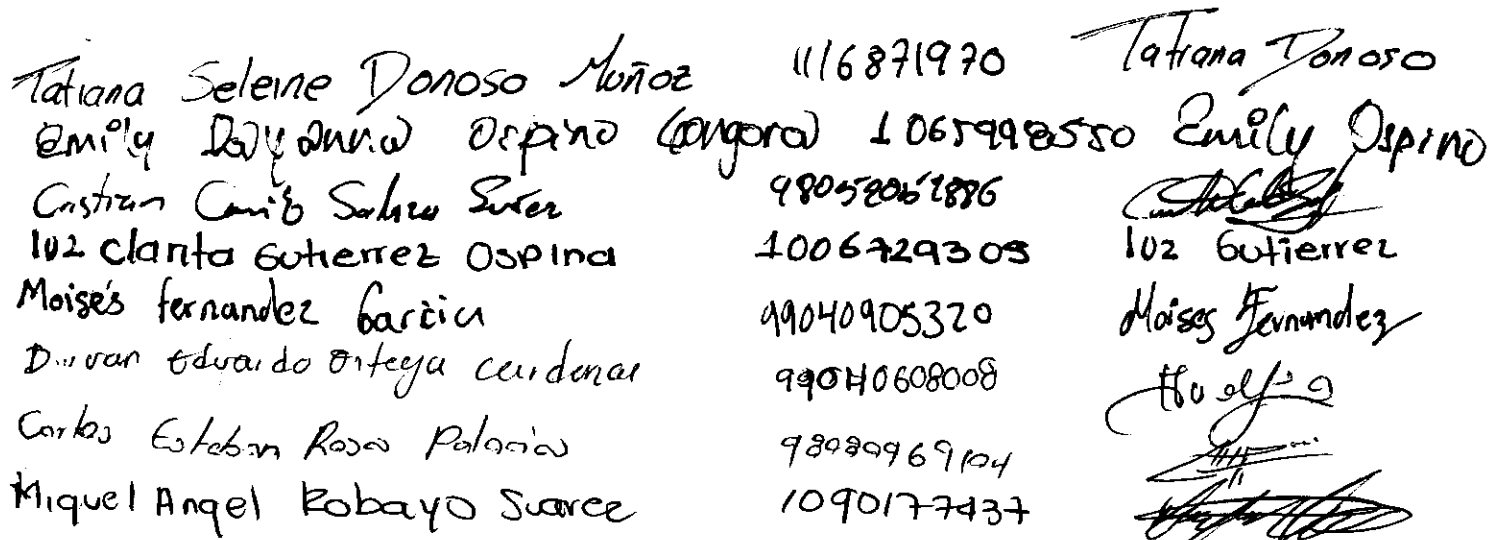 Tatiana Seleine Donoso Muñoz 1116871970 Tatiana Donoso
Emily Dayanna Ospino Gongora 1065998550 Emily Ospino
Cristian Camilo Suarez
luz clarita Gutierrez Ospina 1006729305 luz Gutierrez
Moisés fernandez Garcia 99040905320 Moises Fernandez
Eduardo Ortega cardenas 99040608008
Carlos Esteban Rosas Palacios 98080969104
Miguel Angel Robayo Suarez 1090177437